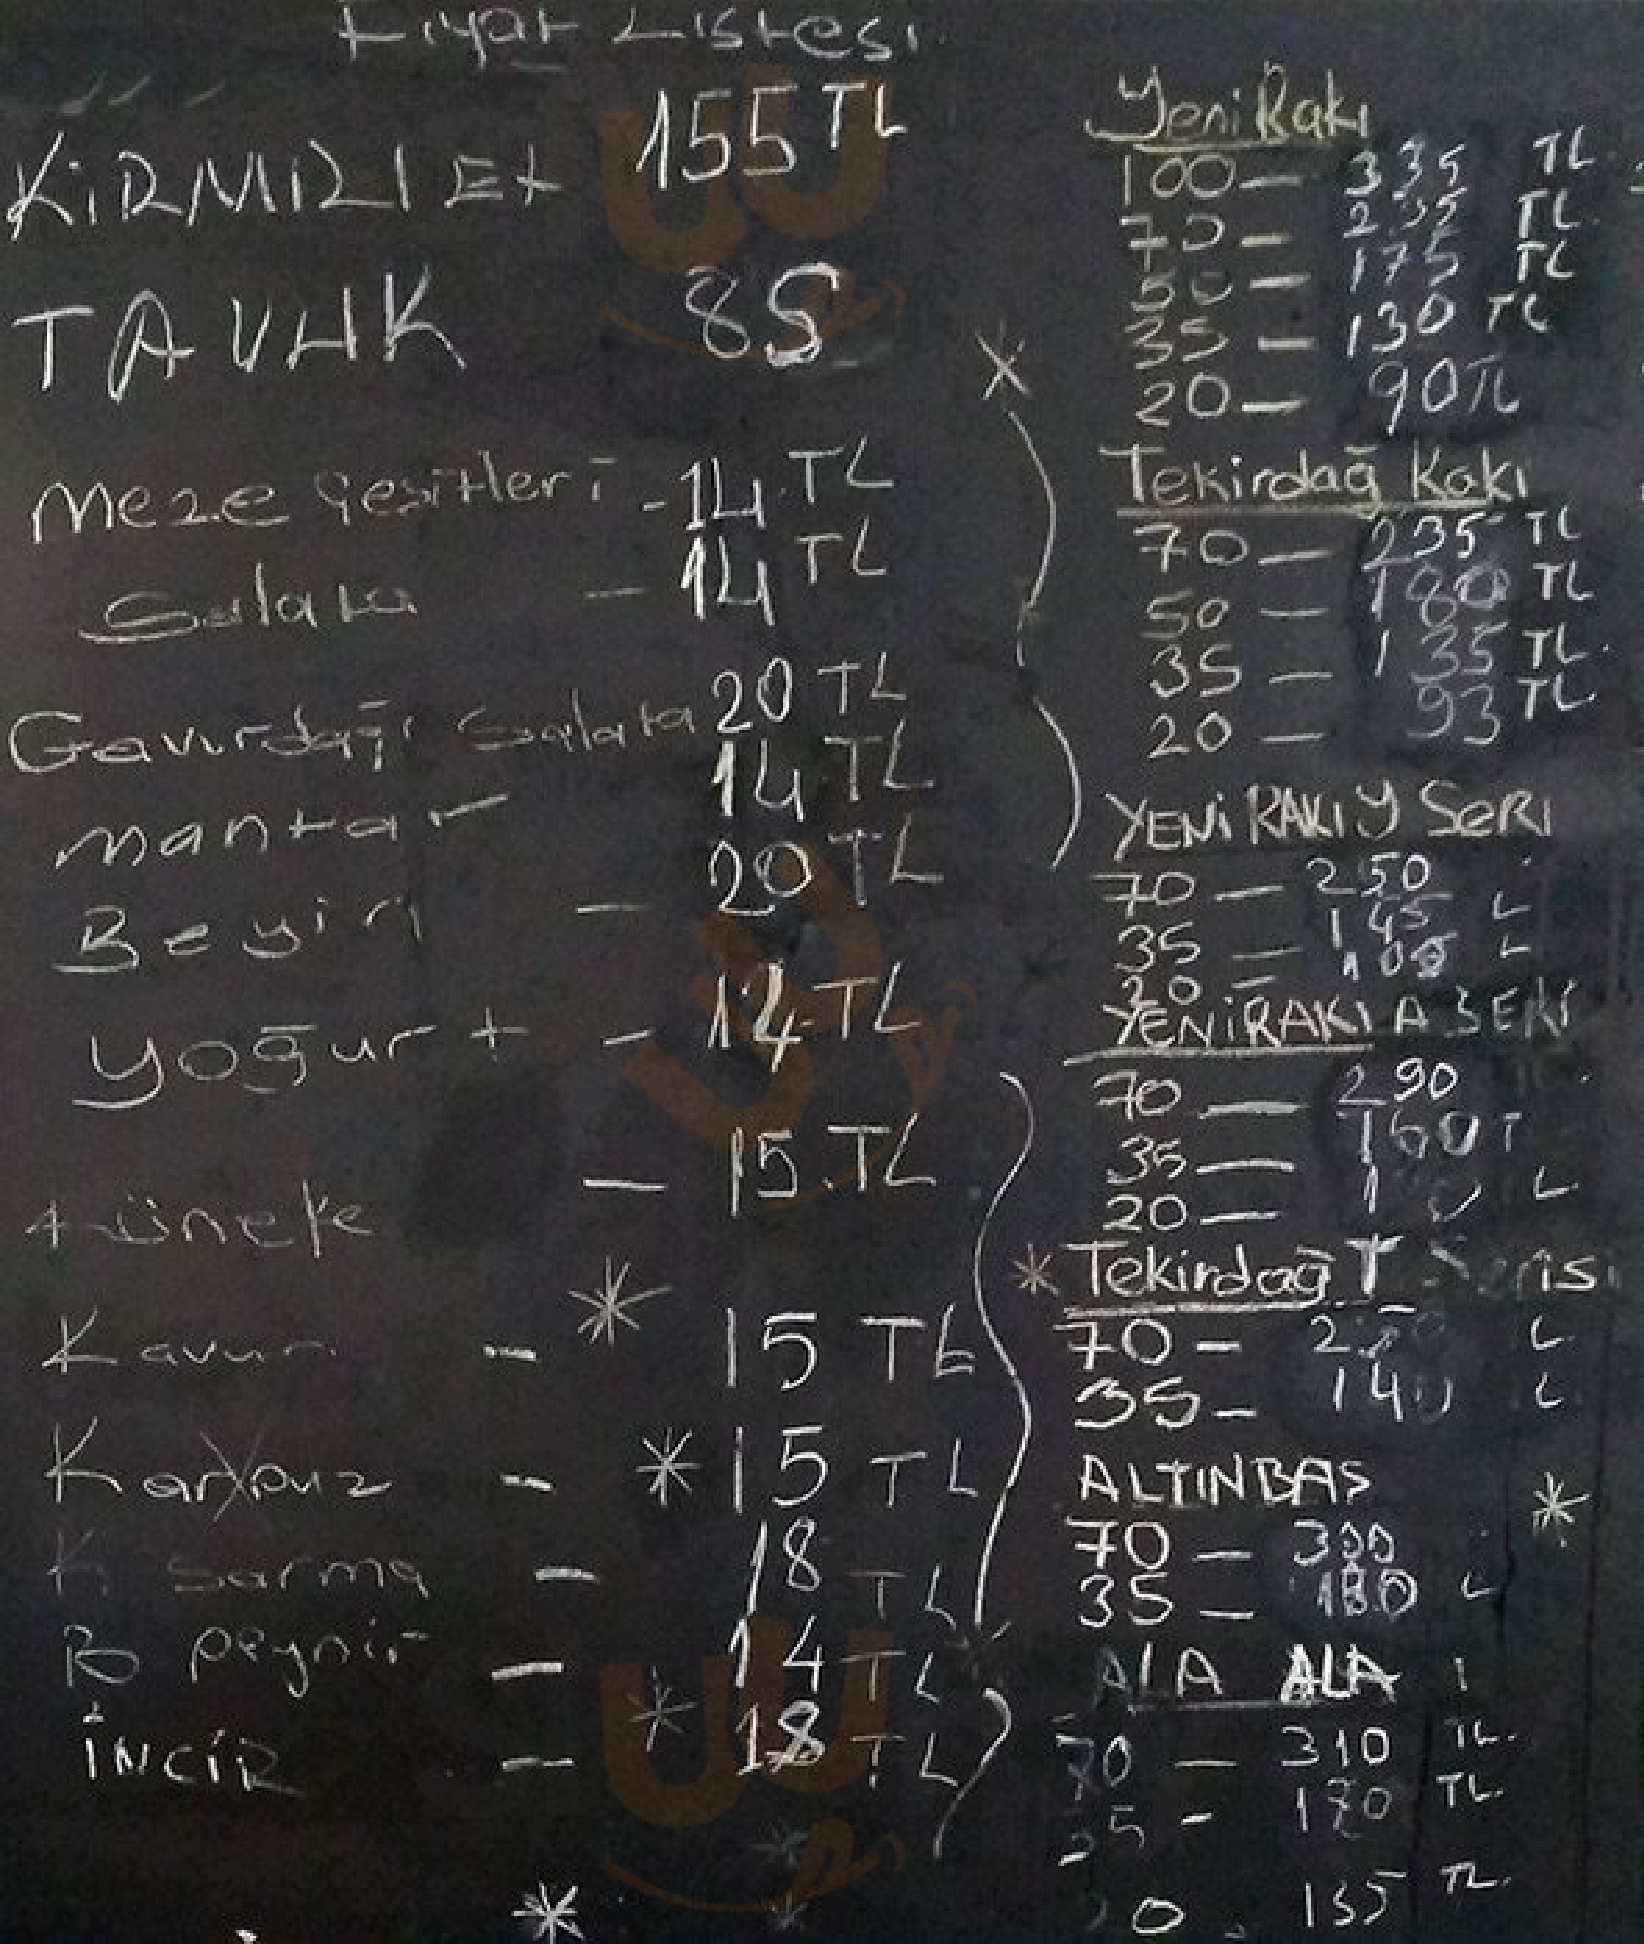 Fiyat Listesi
KiRMIZI Et 155 TL
TAVUK 85
Meze çeşitleri - 14 TL
Salata - 14 TL
Gavurdağı Salata 20 TL
Mantar 14 TL
Beyin - 20 TL
Yoğurt - 14 TL
- 15 TL
Kavun - * 15 TL
Karpuz - * 15 TL
K Sarma - 18 TL
B peynir - 14 TL
İNCİR - * 18 TL
Yeni Rakı
100 - 335 TL
70 - 235 TL
50 - 175 TL
35 - 130 TL
20 - 90 TL
Tekirdağ Rakı
70 - 235 TL
50 - 180 TL
35 - 135 TL
20 - 93 TL
YENi RAKI Y SERI
70 - 250
35 - 145 L
20 - 100 L
YENiRAKI A SERi
70 - 290
35 - 160 T
20 -
* Tekirdağ T Serisi
70 -
35 - 140 L
ALTINBAS
70 - 300
35 - 180 L
ALA ALA
70 - 310 TL.
35 - 170 TL.
20 - 135 TL.